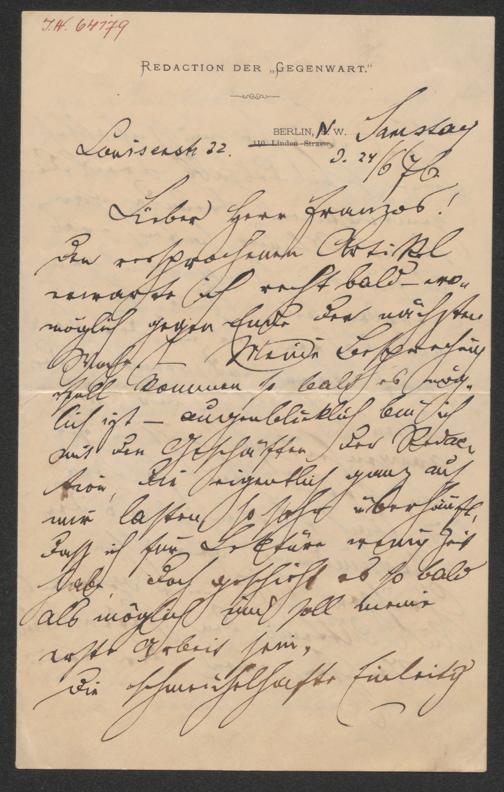 J.N. 64179
REDACTION DER „GEGENWART."
BERLIN, N. W. Samstag
110. Linden-Strasse.
Louisenstr 32. d. 24/6 76.
Lieber Herr Franzos!
Den versprochenen Artikel
erwarte ich recht bald – wo-
möglich gegen Ende der nächsten
Woche. – Meine Besprechung
soll kommen so bald es mög-
lich ist – augenblicklich bin ich
mit den Geschäften der Redac-
tion, die eigentlich ganz auf
mir lasten, so sehr überhäuft,
daß ich für Lektüre wenig Zeit
habe. Doch geschieht es so bald
als möglich und soll meine
erste Arbeit sein.
Die schmeichelhafte Einleitg